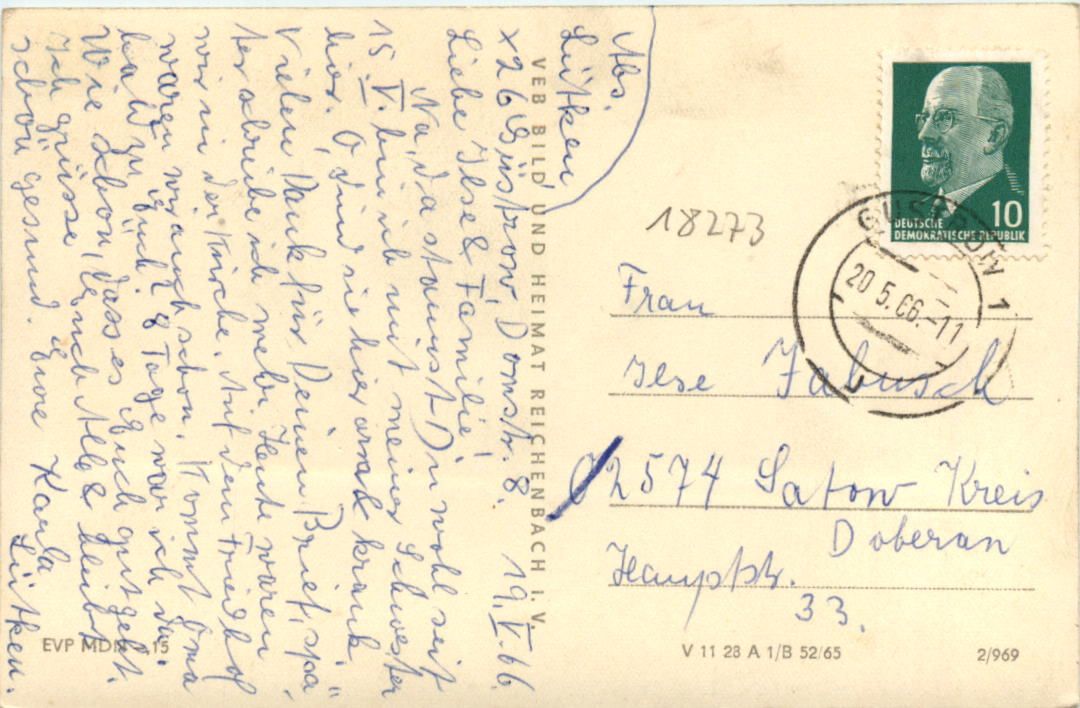 Abs.
Lütken
x26 Güstrow, Domstr. 8. 19.V.66.
Liebe Ilse & Familie!
Na, da staunst Du wohl seit
15.V. bin ich mit meiner Schwester
hier. O, sind sie hier arak krank.
Vielen Dank für Deinen Brief, spä-
ter schreibe ich mehr. Heute waren
wir in der Kirche. Auf dem Friedhof
waren wir auch schon. Kommt Oma
bald zu Euch? 8 Tage war ich da.
Wie schön, dass es Euch gut geht.
Ich grüsse Euch Alle & bleibt
schön gesund. Eure Karla
Lütken.
VEB BILD UND HEIMAT REICHENBACH I. V.
EVP MDN 15
DEUTSCHE
DEMOKRATISCHE REPUBLIK
10
GUSTROW 1
20.5.66.-11
18273
Frau
Ilse Jabusch
02574 Satow Kreis
Doberan
Hauptstr.
33.
V 11 28 A 1/B 52/65
2/969